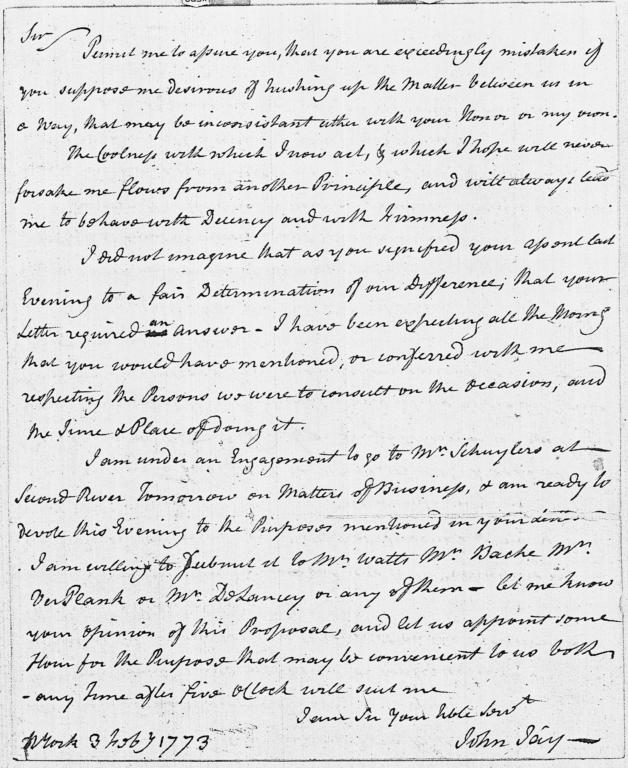 Sir
Permit me to assure you, that you are exceedingly mistaken if
you suppose me desirous of hushing up the Matter between us in
a Way, that may be inconsistant either with your Honor or my own.
The Coolness with which I now act, & which I hope will never
forsake me flows from another Principle, and will always lead
me to behave with Decency and with Firmness.
I did not imagine that as you signified your assent last
Evening to a fair Determination of our Difference, that your
Letter required an answer - I have been expecting all the Morng
that you would have mentioned, or conferred with me
respecting the Persons we were to consult on the occasion, and
the Time & Place of doing it.
I am under an Engagement to go to Mr. Schuylers at
Second River Tomorrow on Matters of Business, & am ready to
devote this Evening to the Purposes mentioned in your
I am willing to submit it to Mr. Watts Mr. Bache Mr.
VerPlank or Mr. DeLancey or any of them - let me know
your opinion of this Proposal, and let us appoint some
Hour for the Purpose that may be convenient to us both
- any Time after five oClock will suit me
I am Sir Your hble Servt
NYork 3 Feby 1773
John Jay